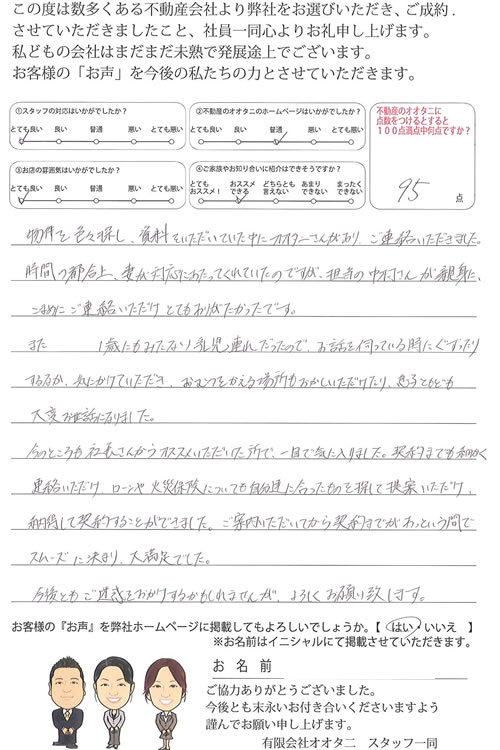 この度は数多くある不動産会社より弊社をお選びいただき、ご成約
させていただきましたこと、社員一同心よりお礼申し上げます。
私どもの会社はまだまだ未熟で発展途上でございます。
お客様の「お声」を今後の私たちの力とさせていただきます。
①スタッフの対応はいかがでしたか？
とても良い 良い 普通 悪い とても悪い
②不動産のオオタニのホームページはいかがでしたか？
とても良い 良い 普通 悪い とても悪い
③お店の雰囲気はいかがでしたか？
とても良い 良い 普通 悪い とても悪い
④ご家族やお知り合いに紹介はできそうですか？
とてもオススメ！ オススメできる どちらとも言えない あまりできない まったくできない
不動産のオオタニに
点数をつけるとすると
１００点満点中何点ですか？
95 点
物件を色々探し、資料をいただいていた中にオオタニさんがあり、ご連絡いただきました。
時間の都合上、妻が対応にあたってくれていたのですが、担当の中村さんが親身に、
こまめにご連絡いただけとてもありがたかったです。
また 1歳にもみたない乳児連れだったので、お話を伺っている時にぐずったり
するなか、気にかけていただき、おむつをかえる場所もおかしいただけたり、息子ともども
大変お世話になりました。
今のところも社長さんからオススメいただいた所で、一目で気に入りました。契約までも細かく
連絡いただけ、ローンや火災保険についても自分達に合ったものを探して提案いただけ、
納得して契約することができました。ご案内いただいてから契約までがあっという間で
スムーズに決まり、大満足でした。
今後ともご迷惑をおかけするかもしれませんが、よろしくお願い致します。
お客様の『お声』を弊社ホームページに掲載してもよろしいでしょうか。【 はい・いいえ 】
※お名前はイニシャルにて掲載させていただきます。
お 名 前
ご協力ありがとうございました。
今後とも末永いお付き合いくださいますよう
謹んでお願い申し上げます。
有限会社オオタニ スタッフ一同